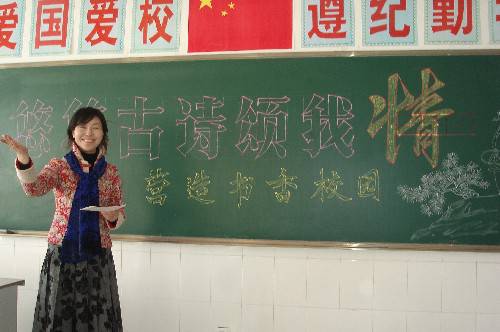 爱国爱校 遵纪勤
悠悠古诗颂我情
营造书香校园